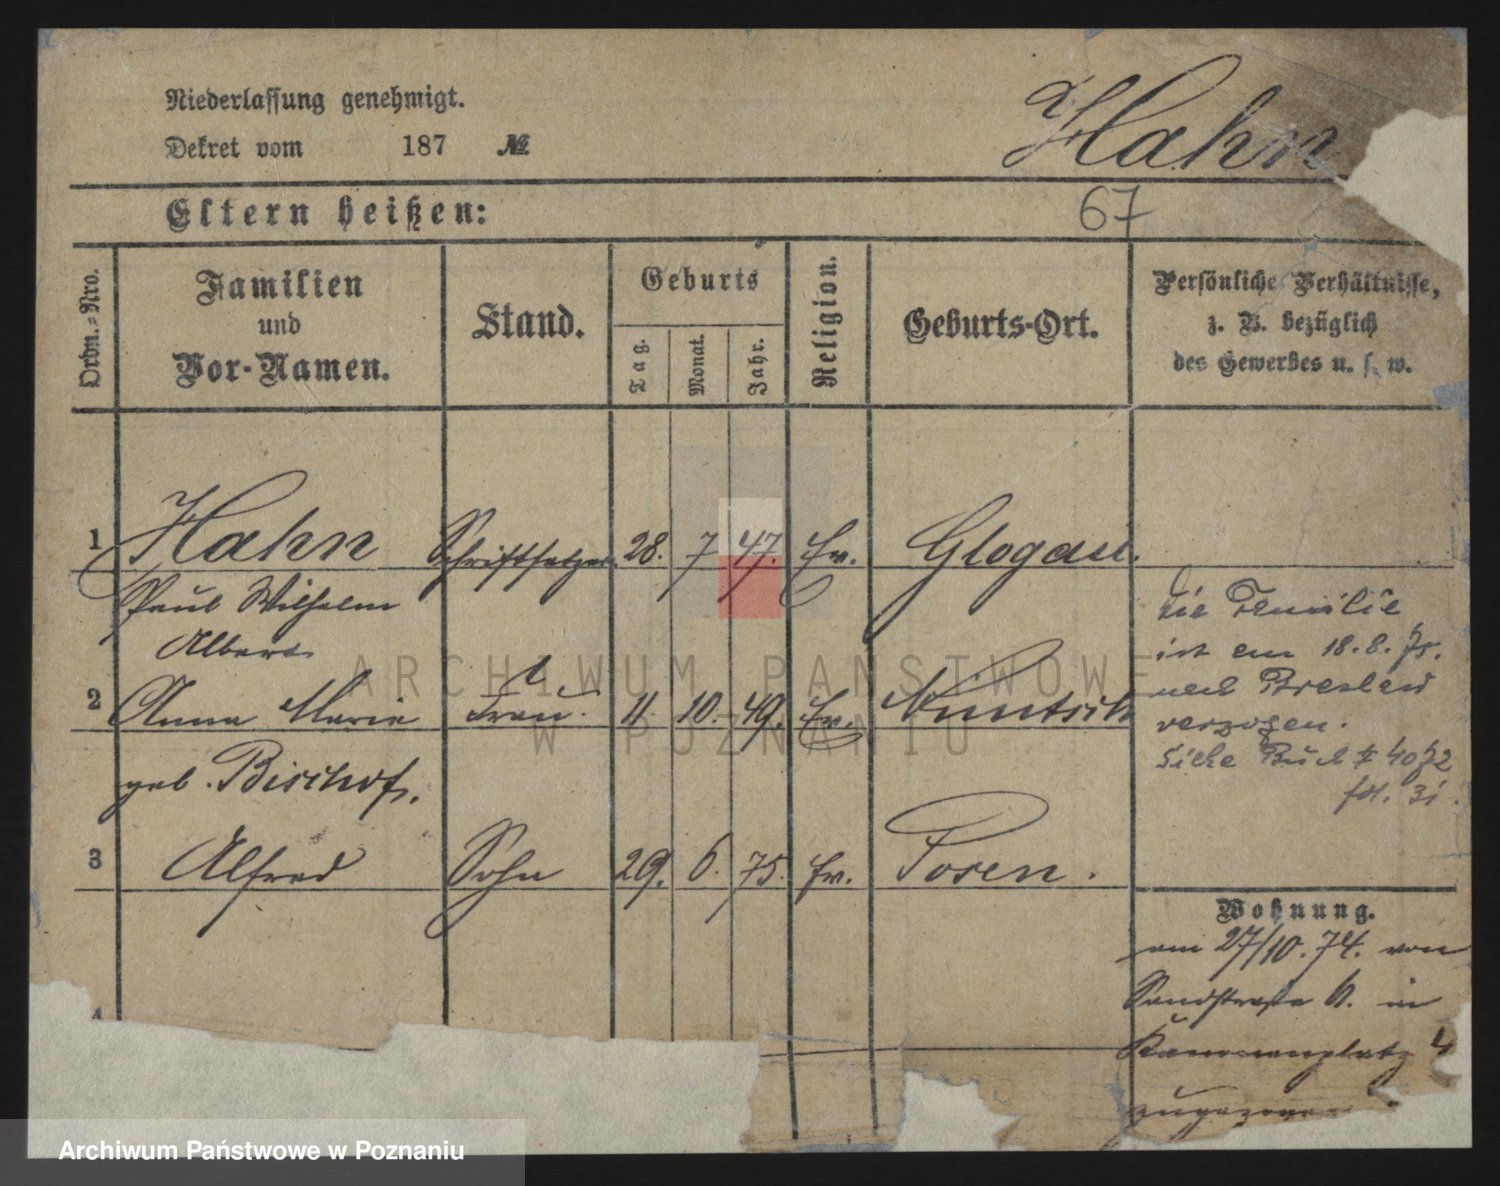 Niederlassung genehmigt.
Dekret vom 187 №
Hahn
67
Eltern heißen:
Ordn.-Nro.
Familien
und
Vor-Namen.
Stand.
Geburts
Tag.
Monat.
Jahr.
Religion.
Geburts-Ort.
Persönliche Verhältnisse,
z. B. bezüglich
des Gewerbes u. s. w.
1 Hahn Schriftsetzer 28. 7 47. Ev. Glogau.
Paul Wilhelm
Albert
2 Anna Marie Frau. 11. 10. 49. Ev.
geb. Bischof.
3 Alfred Sohn 29. 6. 75. Ev. Posen.
4
Die Familie
ist am 18.8.75.
nach Breslau
verzogen.
Siehe Buch 4072
fol. 31.
Wohnung.
am 27/10. 74. von
Sandstraße 6. in
Kanonenplatz 4
zugezogen
ARCHIWUM PAŃSTWOWE
W POZNANIU
Archiwum Państwowe w Poznaniu